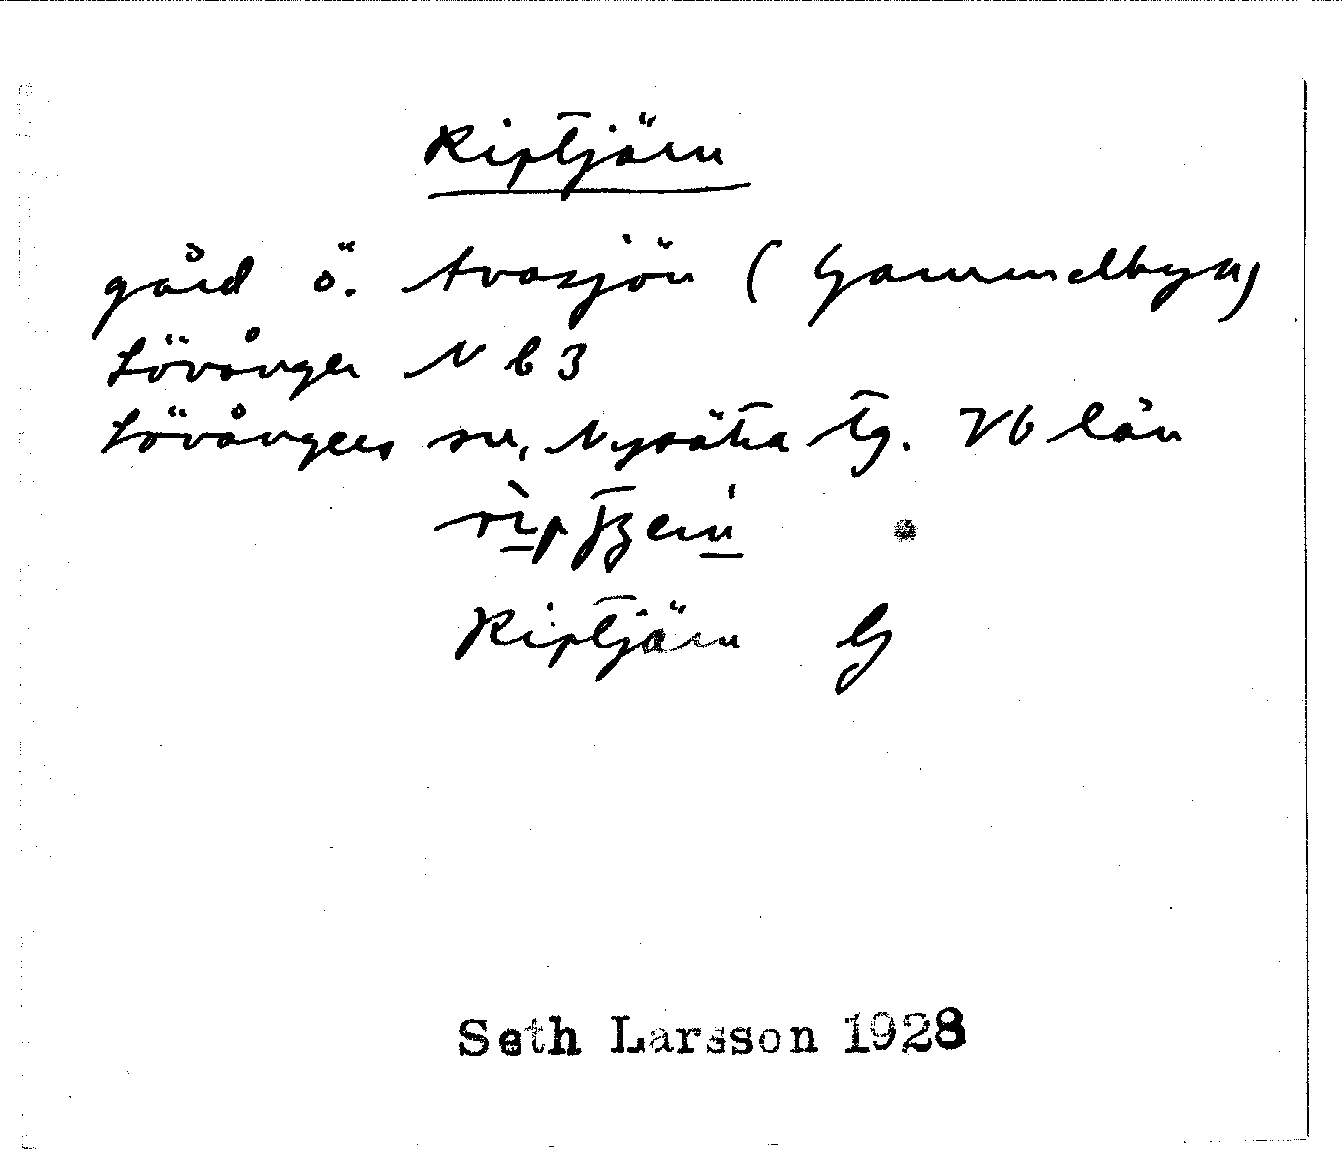 Riptjärn
gård ö. Avasjön (Gammelbyn)
Lövånger N b 3
Lövångers sn, Nysätra tg. Vb län
Riptjärn G
Seth Larsson 1928